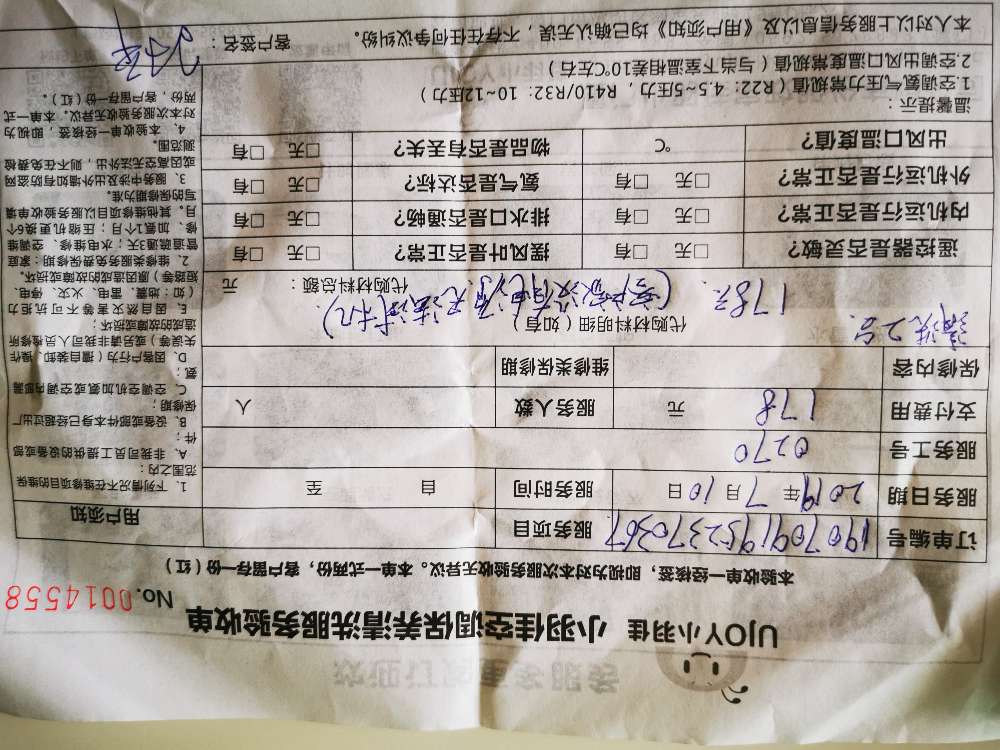 UJOY小羽佳 小羽佳空调保养清洗服务验收单
No. 0014558
本验收单一经签核，即视为对本次服务验收无异议。本单一式两份，客户留存一份（红）
订单编号 190709195237036 服务项目
服务日期 2019年 7月 10日 服务时间 自 至
服务工号 0270
支付费用 178 元 服务人数 人
保修内容 维修类保修期
清洗2台 代购材料明细（如有）
178元
代购材料总额： 元
遥控器是否灵敏？ □无 □有 摆风叶是否正常？ □无 □有
内机运行是否正常？ □无 □有 排水口是否通畅？ □无 □有
外机运行是否正常？ □无 □有 氨气是否达标？ □无 □有
出风口温度值？ ℃ 物品是否有丢失？ □无 □有
用户须知
1、下列情况不在维修项目的维保
范围之内：
A、非我司员工提供的设备或部
件；
B、设备或部件本身已经超过出厂
保修期；
C、空调空机加氨或空调内部漏
氨；
D、因客户行为（擅自装卸、操作
失误等）或另请非我司人员检修所
造成的故障或损坏；
E、因自然灾害等不可抗拒力
（如：地震、雷电、火灾、停电、
短路等）原因造成的故障或损坏。
2、维修类服务免费保修期：家庭
管道疏通3天；水电维修、空调维
修、加氨1个月；压缩机更换6个
月。其他维修项目以服务验收单填
写的保修期为准。
3、服务中涉及出外墙如有防盗网
或因高空无法外出，则不在免费检
测范围。
4、本验收单一经签核，即视为
对本次服务验收无异议。本单一式
两份，客户留存一份（红）。
温馨提示：
1.空调氨气压力常规值（R22：4.5~5压力，R410/R32：10~12压力）
2.空调出风口温度常规值（与当下室温相差10℃左右）
本人对以上服务信息以及《用户须知》均已确认无误，不存在任何争议纠纷。 客户签名：